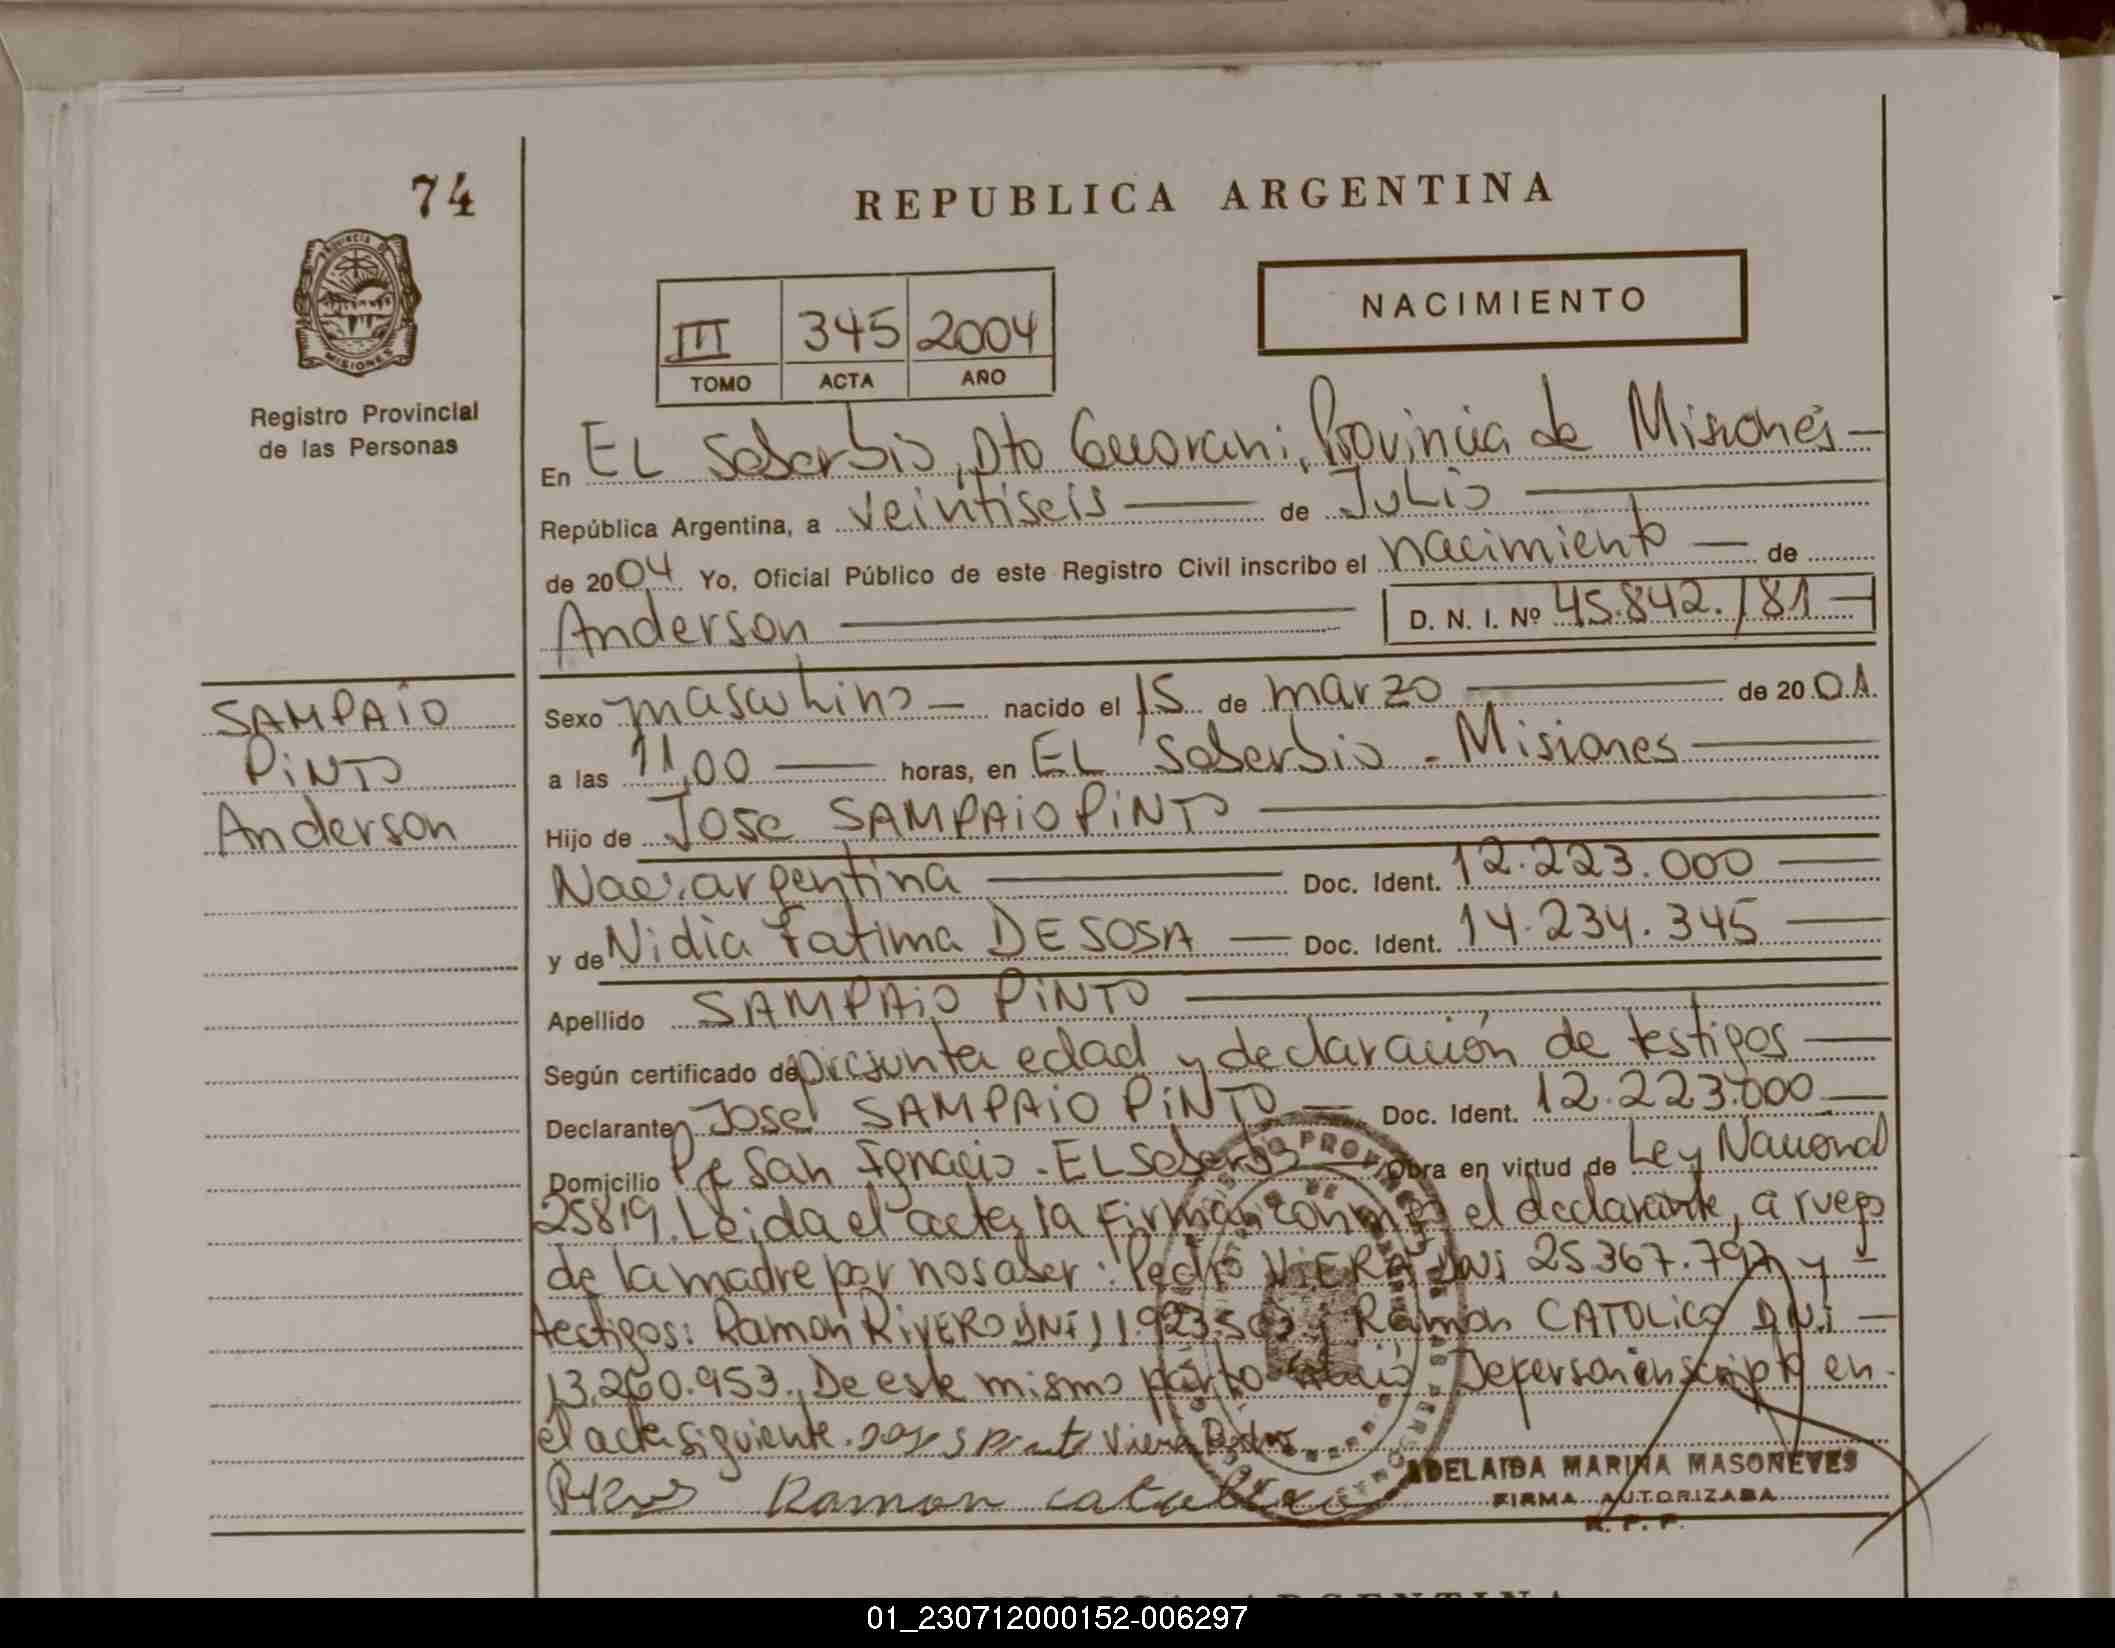 74
REPUBLICA ARGENTINA
PROVINCIA DE
MISIONES
III 345 2004
TOMO ACTA AÑO
NACIMIENTO
Registro Provincial
de las Personas
En EL Soberbio, Dto Guarani, Provincia de Misiones
República Argentina, a veintiseis de Julio
de 2004 Yo, Oficial Público de este Registro Civil inscribo el nacimiento de
Anderson D. N. I. Nº 45.842.181
SAMPAIO
PiNTO
Anderson
Sexo masculino nacido el 15 de marzo de 2001
a las 11,00 horas, en EL Soberbio - Misiones
Hijo de Jose SAMPAiO PiNTO
Nac. argentina Doc. Ident. 12.223.000
y de Nidia Fatima DE SOSA Doc. Ident. 14.234.345
Apellido SAMPAiO PiNTO
Según certificado de presunta edad y declaración de testigos
Declarante Jose SAMPAiO PiNTO Doc. Ident. 12.223.000
Domicilio San Ignacio - EL Soberbio Obra en virtud de Ley Nacional
25819. Leida el acta, la firman con mi el declarante, a ruego
de la madre por no saber: Pedro ViERA DNi 25.367.797 y
testigos: Ramon RiVERO DNi 11.923.503 y Ramon CATOLiCO DNi
13.260.953. De este mismo parto Jeferson inscripto en
el acta siguiente. Viera Pedro
Ramon catolico
ADELAIDA MARINA MASONEVES
FIRMA AUTORIZADA
R. P. P.
01_230712000152-006297